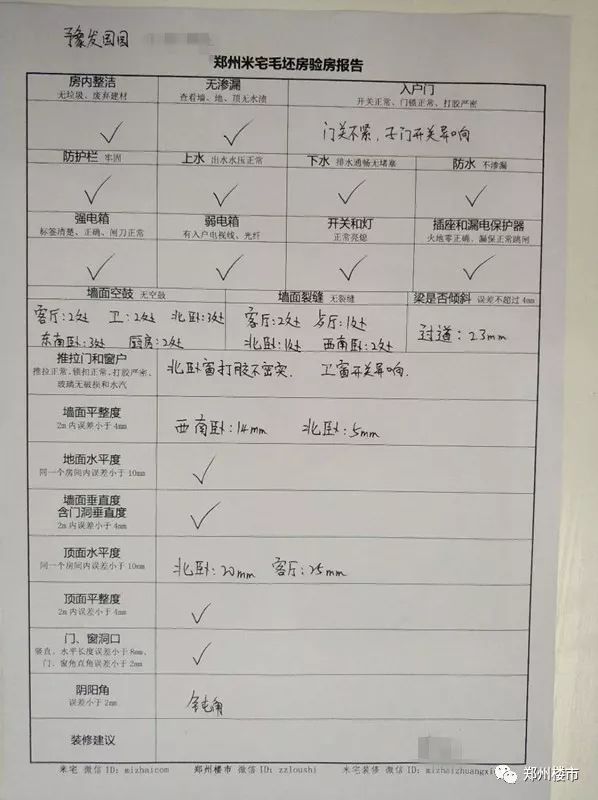 豫发国园
郑州米宅毛坯房验房报告
房内整洁 无渗漏 入户门
无垃圾、废弃建材 查看墙、地、顶无水渍 开关正常、门锁正常、打胶严密
✓ ✓ 门关不紧，子门开关异响
防护栏 牢固 上水 出水水压正常 下水 排水通畅无堵塞 防水 不渗漏
✓ ✓ ✓ ✓
强电箱 弱电箱 开关和灯 插座和漏电保护器
标签清楚、正确、闸刀正常 有入户电视线、光纤 正常亮熄 火地零正确，漏保正常跳闸
✓ ✓ ✓ ✓
墙面空鼓 无空鼓 墙面裂缝 无裂缝 梁是否倾斜 误差不超过4mm
客厅：2处 卫：2处 北卧：3处 客厅：2处 与厅：1处 过道：23mm
东南卧：3处 厨房：2处 北卧：1处 西南卧：2处
推拉门和窗户
推拉正常、锁扣正常、打胶严密、
玻璃无破损和水汽
北卧窗打胶不密实． 卫窗开关异响．
墙面平整度
2m内误差小于4mm
西南卧：14mm 北卧：5mm
地面水平度
同一个房间内误差小于10mm
✓
墙面垂直度
含门洞垂直度
2m内误差小于4mm
✓
顶面水平度
同一个房间内误差小于10mm
北卧：20mm 客厅：25mm
顶面平整度
2m内误差小于4mm
✓
门、窗洞口
竖直、水平长度误差小于8mm、
门、窗角直角误差小于2mm
✓
阴阳角
误差小于2mm
余屯角
装修建议
米宅 微信 ID：mizhaicom 郑州楼市 微信 ID：zzloushi 米宅装修 微信 ID：mizhaizhuangxiu
郑州楼市